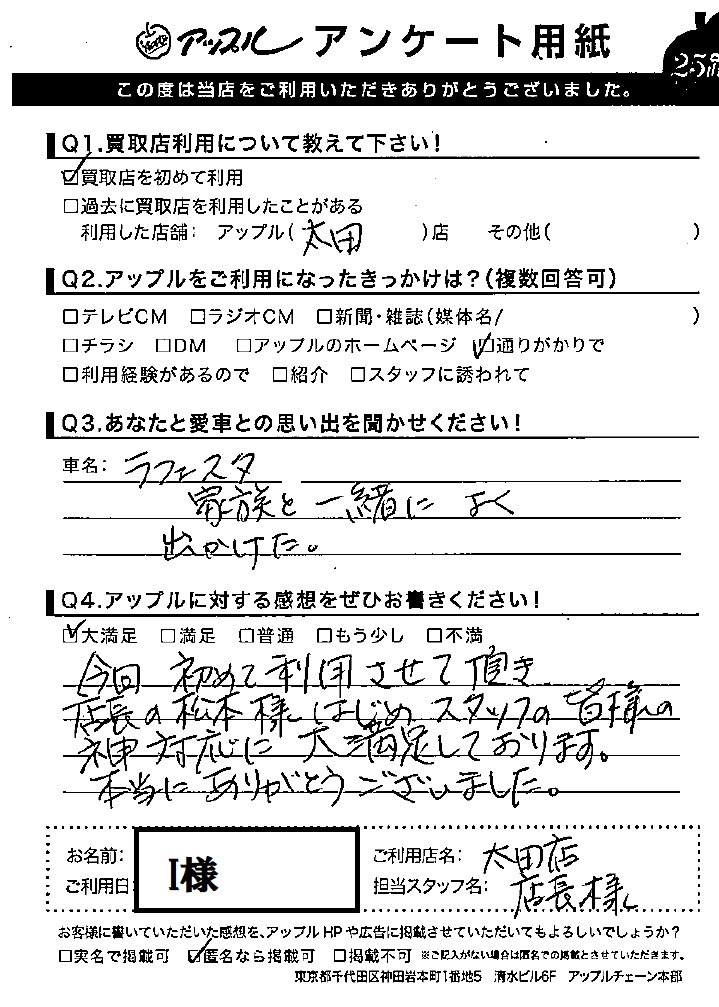 アップル アンケート用紙
この度は当店をご利用いただきありがとうございました。
Q1.買取店利用について教えて下さい!
☑買取店を初めて利用
□過去に買取店を利用したことがある
利用した店舗: アップル(太田)店 その他( )
Q2.アップルをご利用になったきっかけは?(複数回答可)
□テレビCM □ラジオCM □新聞・雑誌(媒体名/ )
□チラシ □DM □アップルのホームページ ☑通りがかりで
□利用経験があるので □紹介 □スタッフに誘われて
Q3.あなたと愛車との思い出を聞かせください!
車名: ラフェスタ
家族と一緒に よく
出かけた。
Q4.アップルに対する感想をぜひお書きください!
☑大満足 □満足 □普通 □もう少し □不満
今回 初めて利用させて頂き
店長の松本様はじめ スタッフの皆様の
神対応に 大満足しております。
本当に ありがとうございました。
お名前: I様
ご利用日
ご利用店名: 太田店
担当スタッフ名: 店長様
お客様に書いていただいた感想を、アップルHPや広告に掲載させていただいてもよろしいでしょうか?
□実名で掲載可 ☑匿名なら掲載可 □掲載不可 ※ご記入がない場合は匿名での掲載とさせていただきます。
東京都千代田区神田岩本町1番地5 清水ビル6F アップルチェーン本部